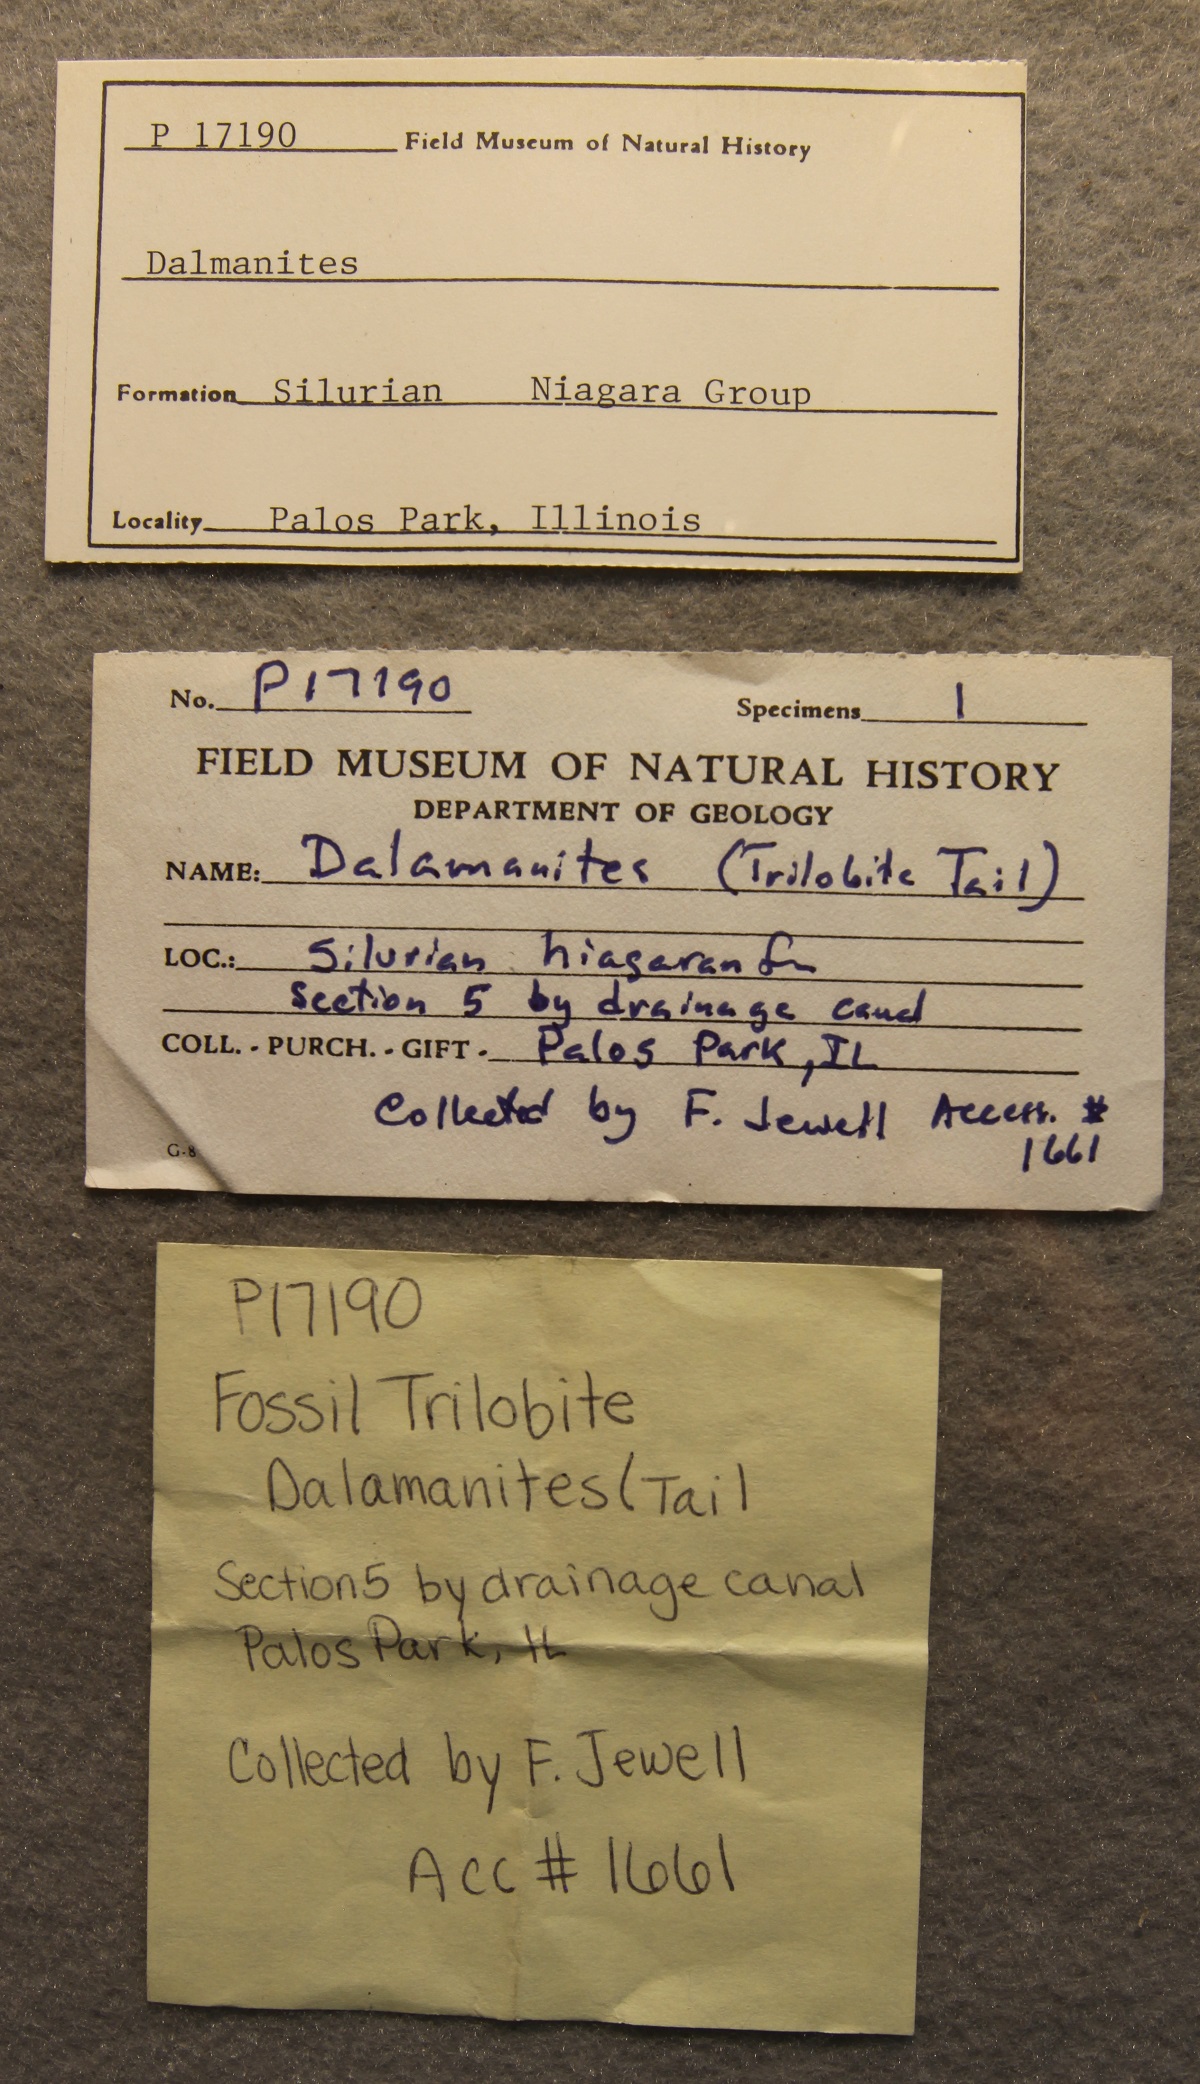 P 17190 Field Museum of Natural History
Dalmanites
Formation Silurian Niagara Group
Locality Palos Park, Illinois
No. P17190 Specimens 1
FIELD MUSEUM OF NATURAL HISTORY
DEPARTMENT OF GEOLOGY
NAME: Dalamanites (Trilobite Tail)
LOC.: Silurian niagaran fm
Section 5 by drainage canal
COLL. - PURCH. - GIFT - Palos Park, IL
Collected by F. Jewell Access. #
1661
G-8
P17190
Fossil Trilobite
Dalamanites (Tail
Section 5 by drainage canal
Palos Park, IL
Collected by F. Jewell
Acc # 1661